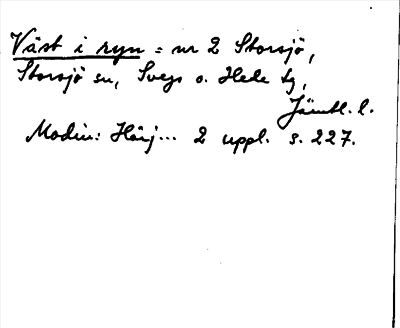 Väst i ryn = nr 2 Storsjö,
Storsjö sn, Svegs o. Hede tg,
Jämtl. l.
Modin: Härj... 2 uppl. s. 227.